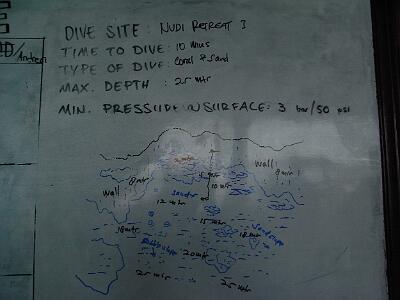 D/Andrea
DIVE SITE: NUDI RETREAT 3
TIME TO DIVE: 10 mins
TYPE OF DIVE: Coral & Sand
MAX. DEPTH: 25 mtr
MIN. PRESSURE ON SURFACE: 3 bar/50 psi
wall
8 mtr
5 mtr
10 mtr
wall
8 mtr
12 mtr
15 mtr
18 mtr
18 mtr
20 mtr
25 mtr
25 mtr